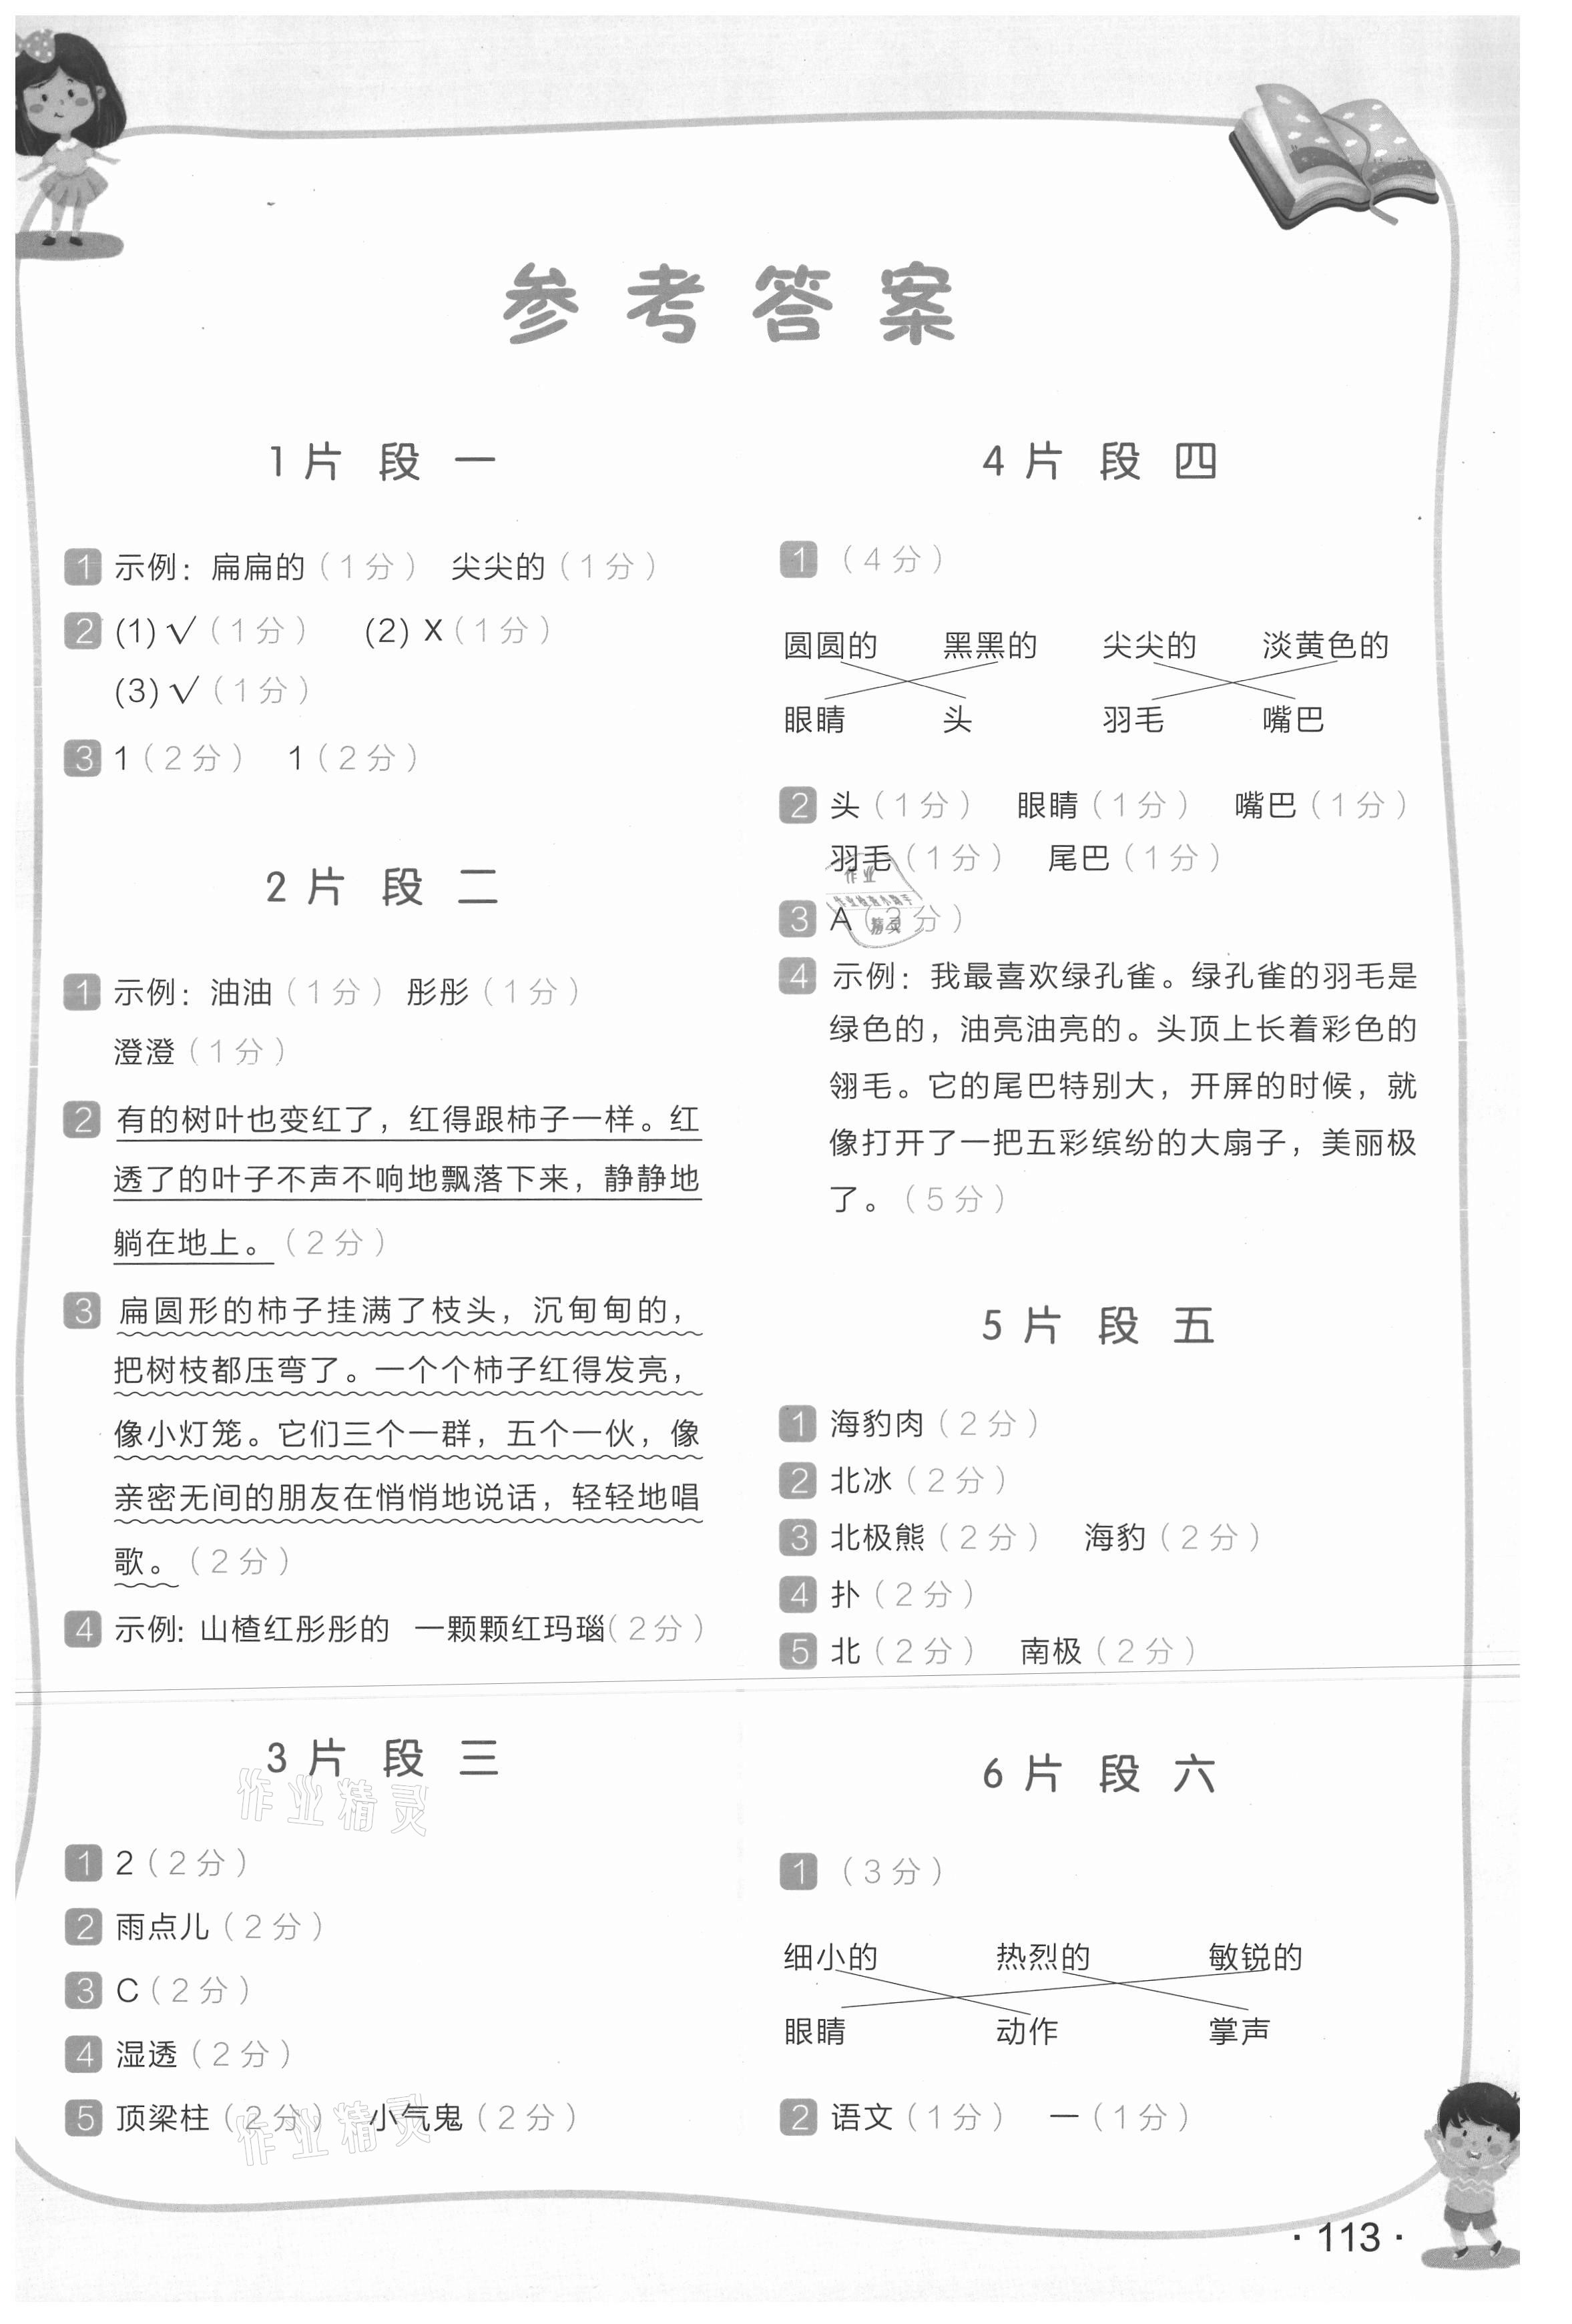 参考答案
1 片 段 一
1 示例：扁扁的（1分） 尖尖的（1分）
2 (1) √（1分） (2) X（1分）
(3) √（1分）
3 1（2分） 1（2分）
2 片 段 二
1 示例：油油（1分） 彤彤（1分）
澄澄（1分）
2 有的树叶也变红了，红得跟柿子一样。红
透了的叶子不声不响地飘落下来，静静地
躺在地上。（2分）
3 扁圆形的柿子挂满了枝头，沉甸甸的，
把树枝都压弯了。一个个柿子红得发亮，
像小灯笼。它们三个一群，五个一伙，像
亲密无间的朋友在悄悄地说话，轻轻地唱
歌。（2分）
4 示例：山楂红彤彤的 一颗颗红玛瑙（2分）
3 片 段 三
作业精灵
1 2（2分）
2 雨点儿（2分）
3 C（2分）
4 湿透（2分）
5 顶梁柱（2分） 小气鬼（2分）
作业精灵
4 片 段 四
1 （4分）
圆圆的 黑黑的 尖尖的 淡黄色的
眼睛 头 羽毛 嘴巴
2 头（1分） 眼睛（1分） 嘴巴（1分）
羽毛（1分） 尾巴（1分）
作业
3 A（ 分）
精灵
4 示例：我最喜欢绿孔雀。绿孔雀的羽毛是
绿色的，油亮油亮的。头顶上长着彩色的
翎毛。它的尾巴特别大，开屏的时候，就
像打开了一把五彩缤纷的大扇子，美丽极
了。（5分）
5 片 段 五
1 海豹肉（2分）
2 北冰（2分）
3 北极熊（2分） 海豹（2分）
4 扑（2分）
5 北（2分） 南极（2分）
6 片 段 六
1 （3分）
细小的 热烈的 敏锐的
眼睛 动作 掌声
2 语文（1分） 一（1分）
· 113 ·